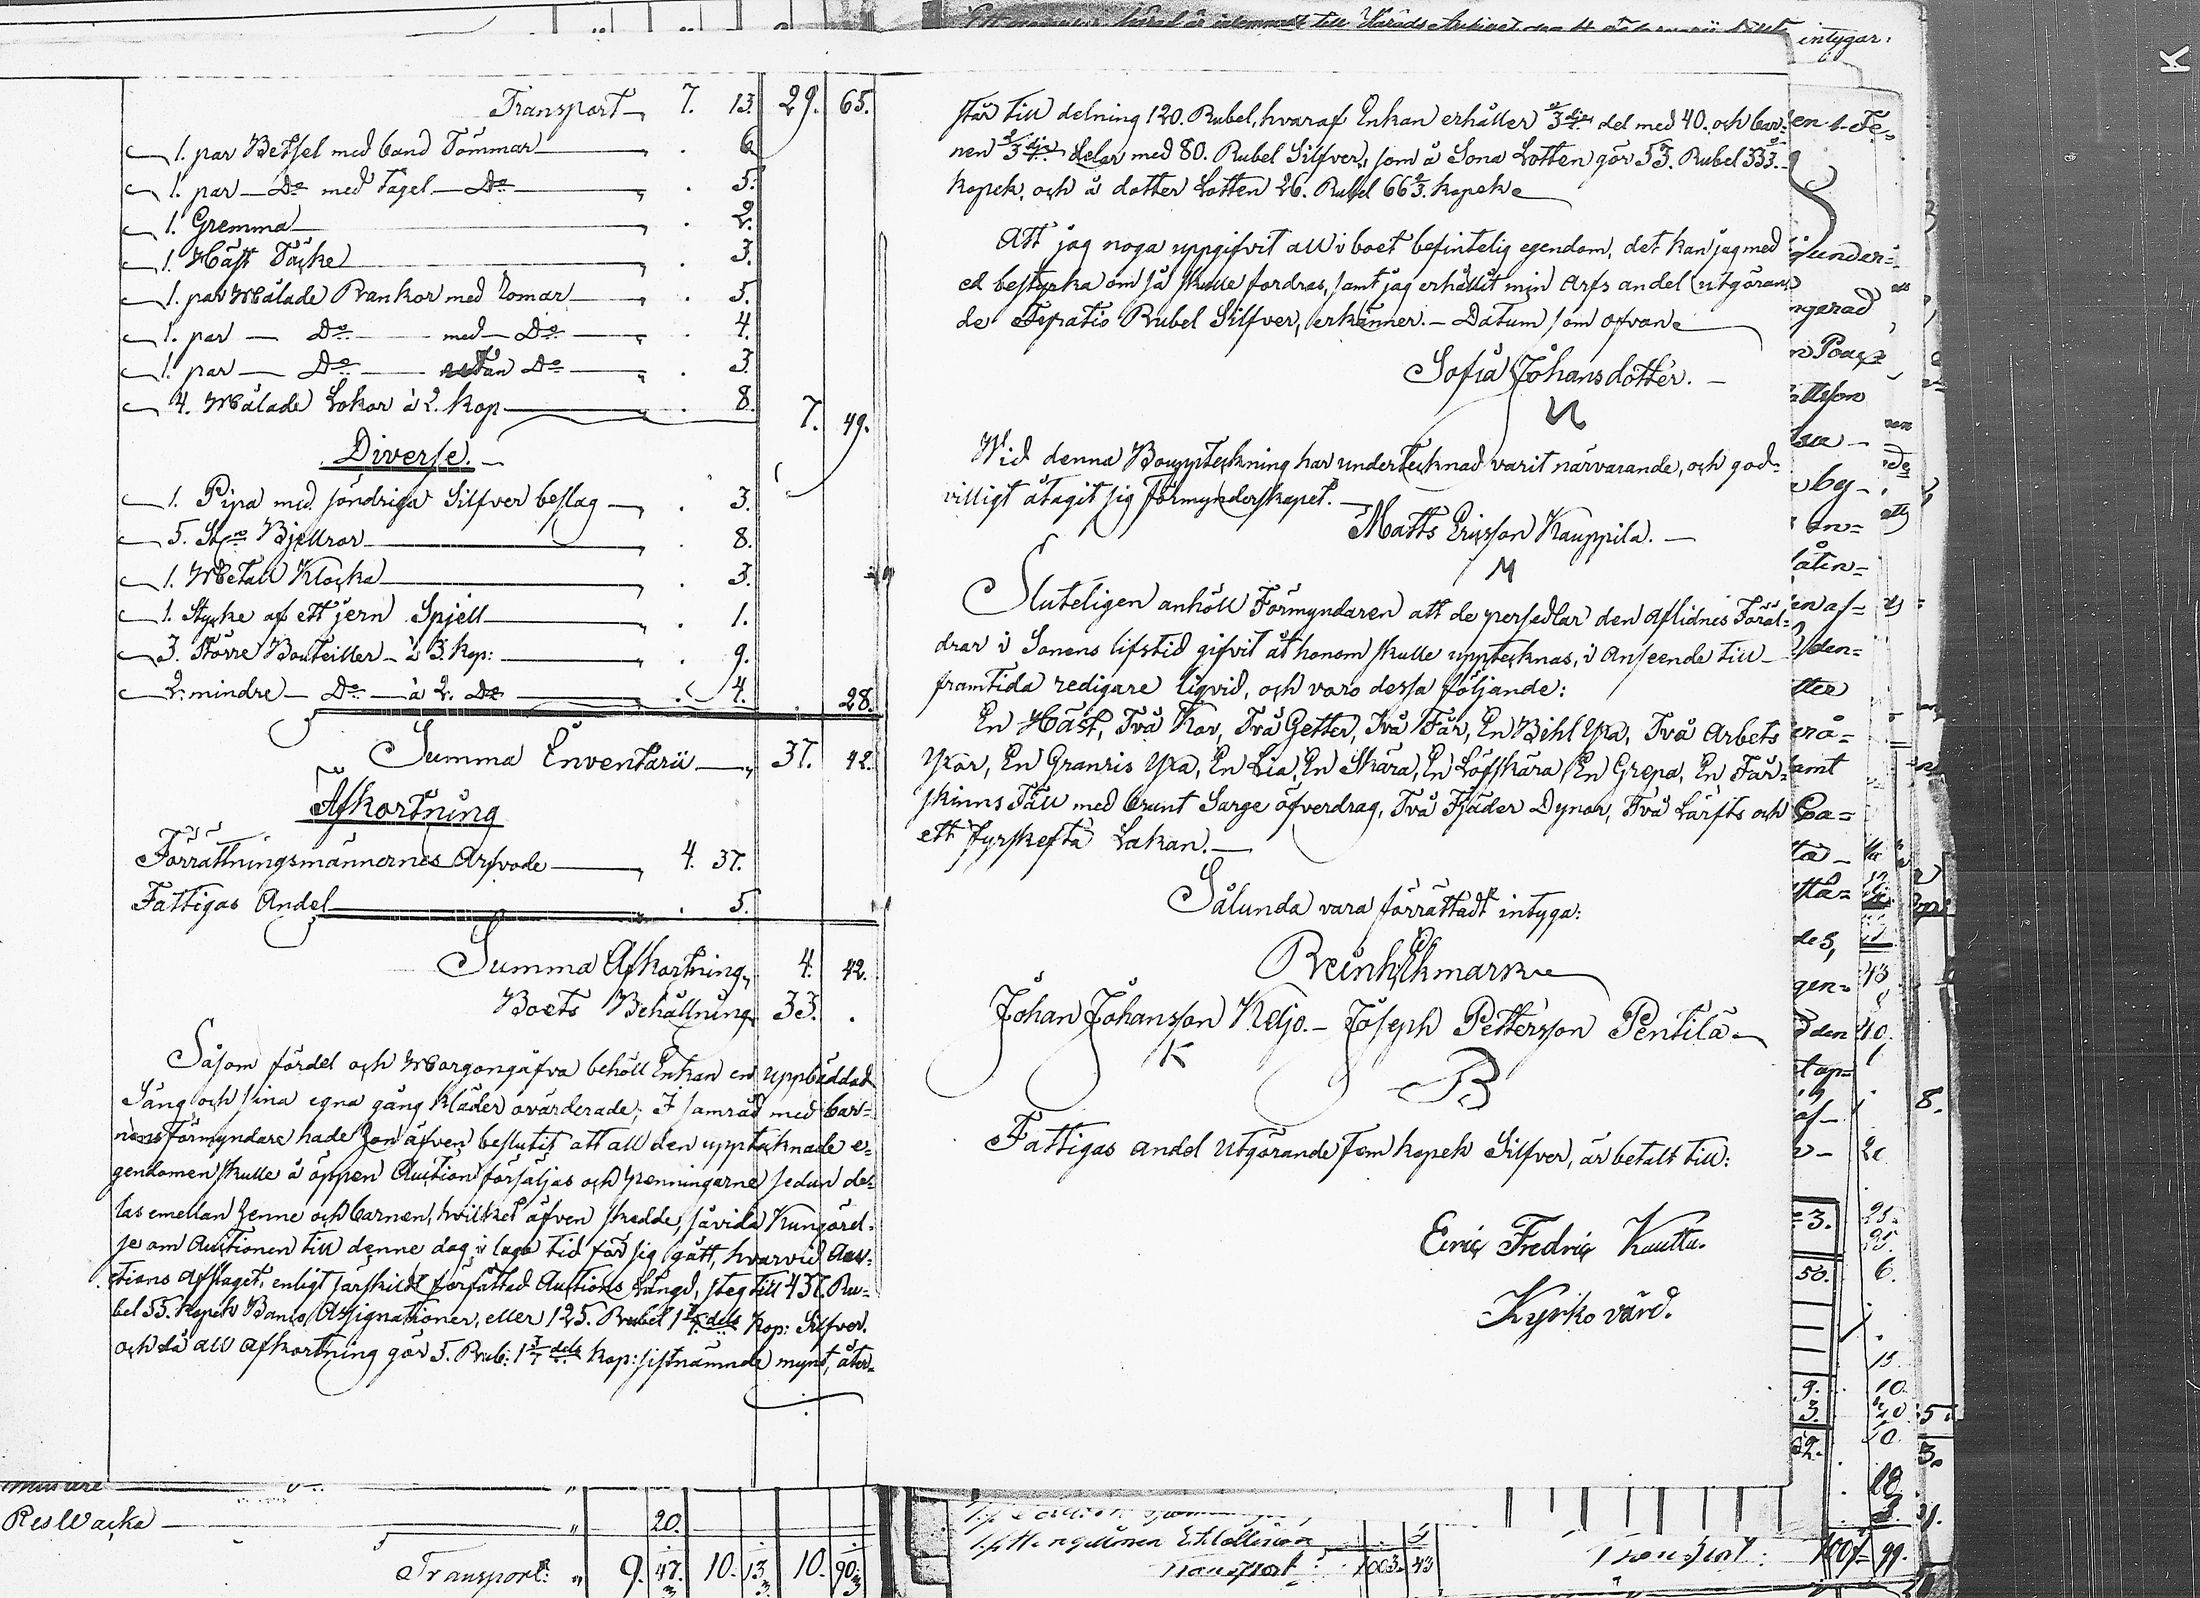 Transport 7. 13. 29. 65.
1. par Betsel med band Tömmar " . 6.
1. par Do med Tagel Do " . 5.
1. Gremma " . 2.
1. Häst Täcke " . 3.
1. par Målade Rankor med Tomar " . 5.
1. par Do med Do " . 4.
1. par Do utan Do " . 3.
4. Målade Lokor à 2. kop " . 8. 7. 49.
Diverse.
1. Pipa med söndriga Silfver beslag " . 3.
5. St. Bjellror " . 8.
1. Metall Klocka " . 3.
1. Stycke af ett jern Spjell " . 1.
3. Större Bouteiller à 3. kop: " . 9.
2. mindre Do à 2. Do . 4. . 28.
Summa Enventarii " 37. 42.
Afkortning
Förrättningsmännernes Arfvode " 4. 37.
Fattigas Andel . 5.
Summa Afkortning " 4. 42.
Boets Behållning 33. .
Såsom fördel och Morgongåfva behöll Enkan en uppbäddad
Säng och sina egna gång kläder ovärderade; I samråd med bar-
nens Förmyndare hade hon äfven beslutit att all den upptecknade e-
gendomen skulle å öppen Auction försäljas och penningarne sedan de-
las emellan henne och barnen, hvilket äfven skedde, såvida Kungörel-
se om Auctionen till denne dag i laga tid för sig gått, hvarvid Auc-
tions afslaget, enligt särskildt författad Auctions Längd, steg till 437. Ru-
bel 55. kopek Banco Assignationer, eller 125. Rubel 1 3/7 dels kop: Silfver.
och då all afkortning gör 5. Rub: 1 3/7 dels kop: sistnämnde mynt, åter-
står till delning 120. Rubel, hvaraf Enkan erhåller 1/3 del med 40. och bar-
nen 2/3 delar med 80. Rubel Silfver, som å Sona Lotten gör 53. Rubel 33 1/3.
kopek, och å dotter Lotten 26. Rubel 66 2/3. kopek
Att jag noga uppgifvit all i boet befintelig egendom, det kan jag med
ed bestyrka om så skulle fordras, samt jag erhållit min Arfs andel utgöran
de Fyratio Rubel Silfver, erkänner. Datum som ofvan
Sofia Johansdotter.
Wid denna Bouppteckning har undertecknad varit närvarande, och god-
villigt åtagit sig förmynderskapet.
Matts Ericsson Kauppila.
M
Sluteligen anhöll Förmyndaren att de persedlar den aflidnes Föräl-
drar i Sonens lifstid gifvit åt honom skulle upptecknas, i anseende till
framtida redigare liqvid, och voro dessa följande:
En Häst, Två Kor, Två Getter, Två Får, En Bihl Yxa, Två Arbets
Yxor, En Granris Yxa, En Lia, En Skära, En Löfskära, En Grepa, En Får-
skinns Fäll med brunt Sarge öfverdrag, Två Fjäder Dynor, Två Lärfts och
ett fyrskefta Lakan.
Sålunda vara förrättadt intyga:
Reinh. Ekmark
Johan Johansson Keljo. Joseph Pettersson Pentilä
K B
Fattigas andel utgörande fem kopek Silfver, är betalt till:
Eric Fredric Kautta.
Kyrko värd.
intygar:
Res Wäska " 20.
Transport: " 9. 47. 10. 13. 10. 90.
Transport: 1003. 43
Transport: 1007. 99.
K